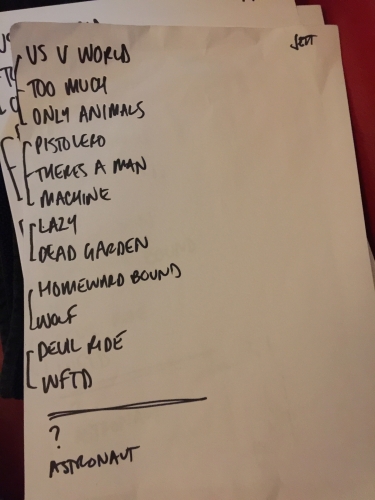 US V WORLD
TOO MUCH
ONLY ANIMALS
PISTOLERO
THERES A MAN
MACHINE
LAZY
DEAD GARDEN
HOMEWARD BOUND
WOLF
DEVIL RIDE
WFTD
?
ASTRONAUT